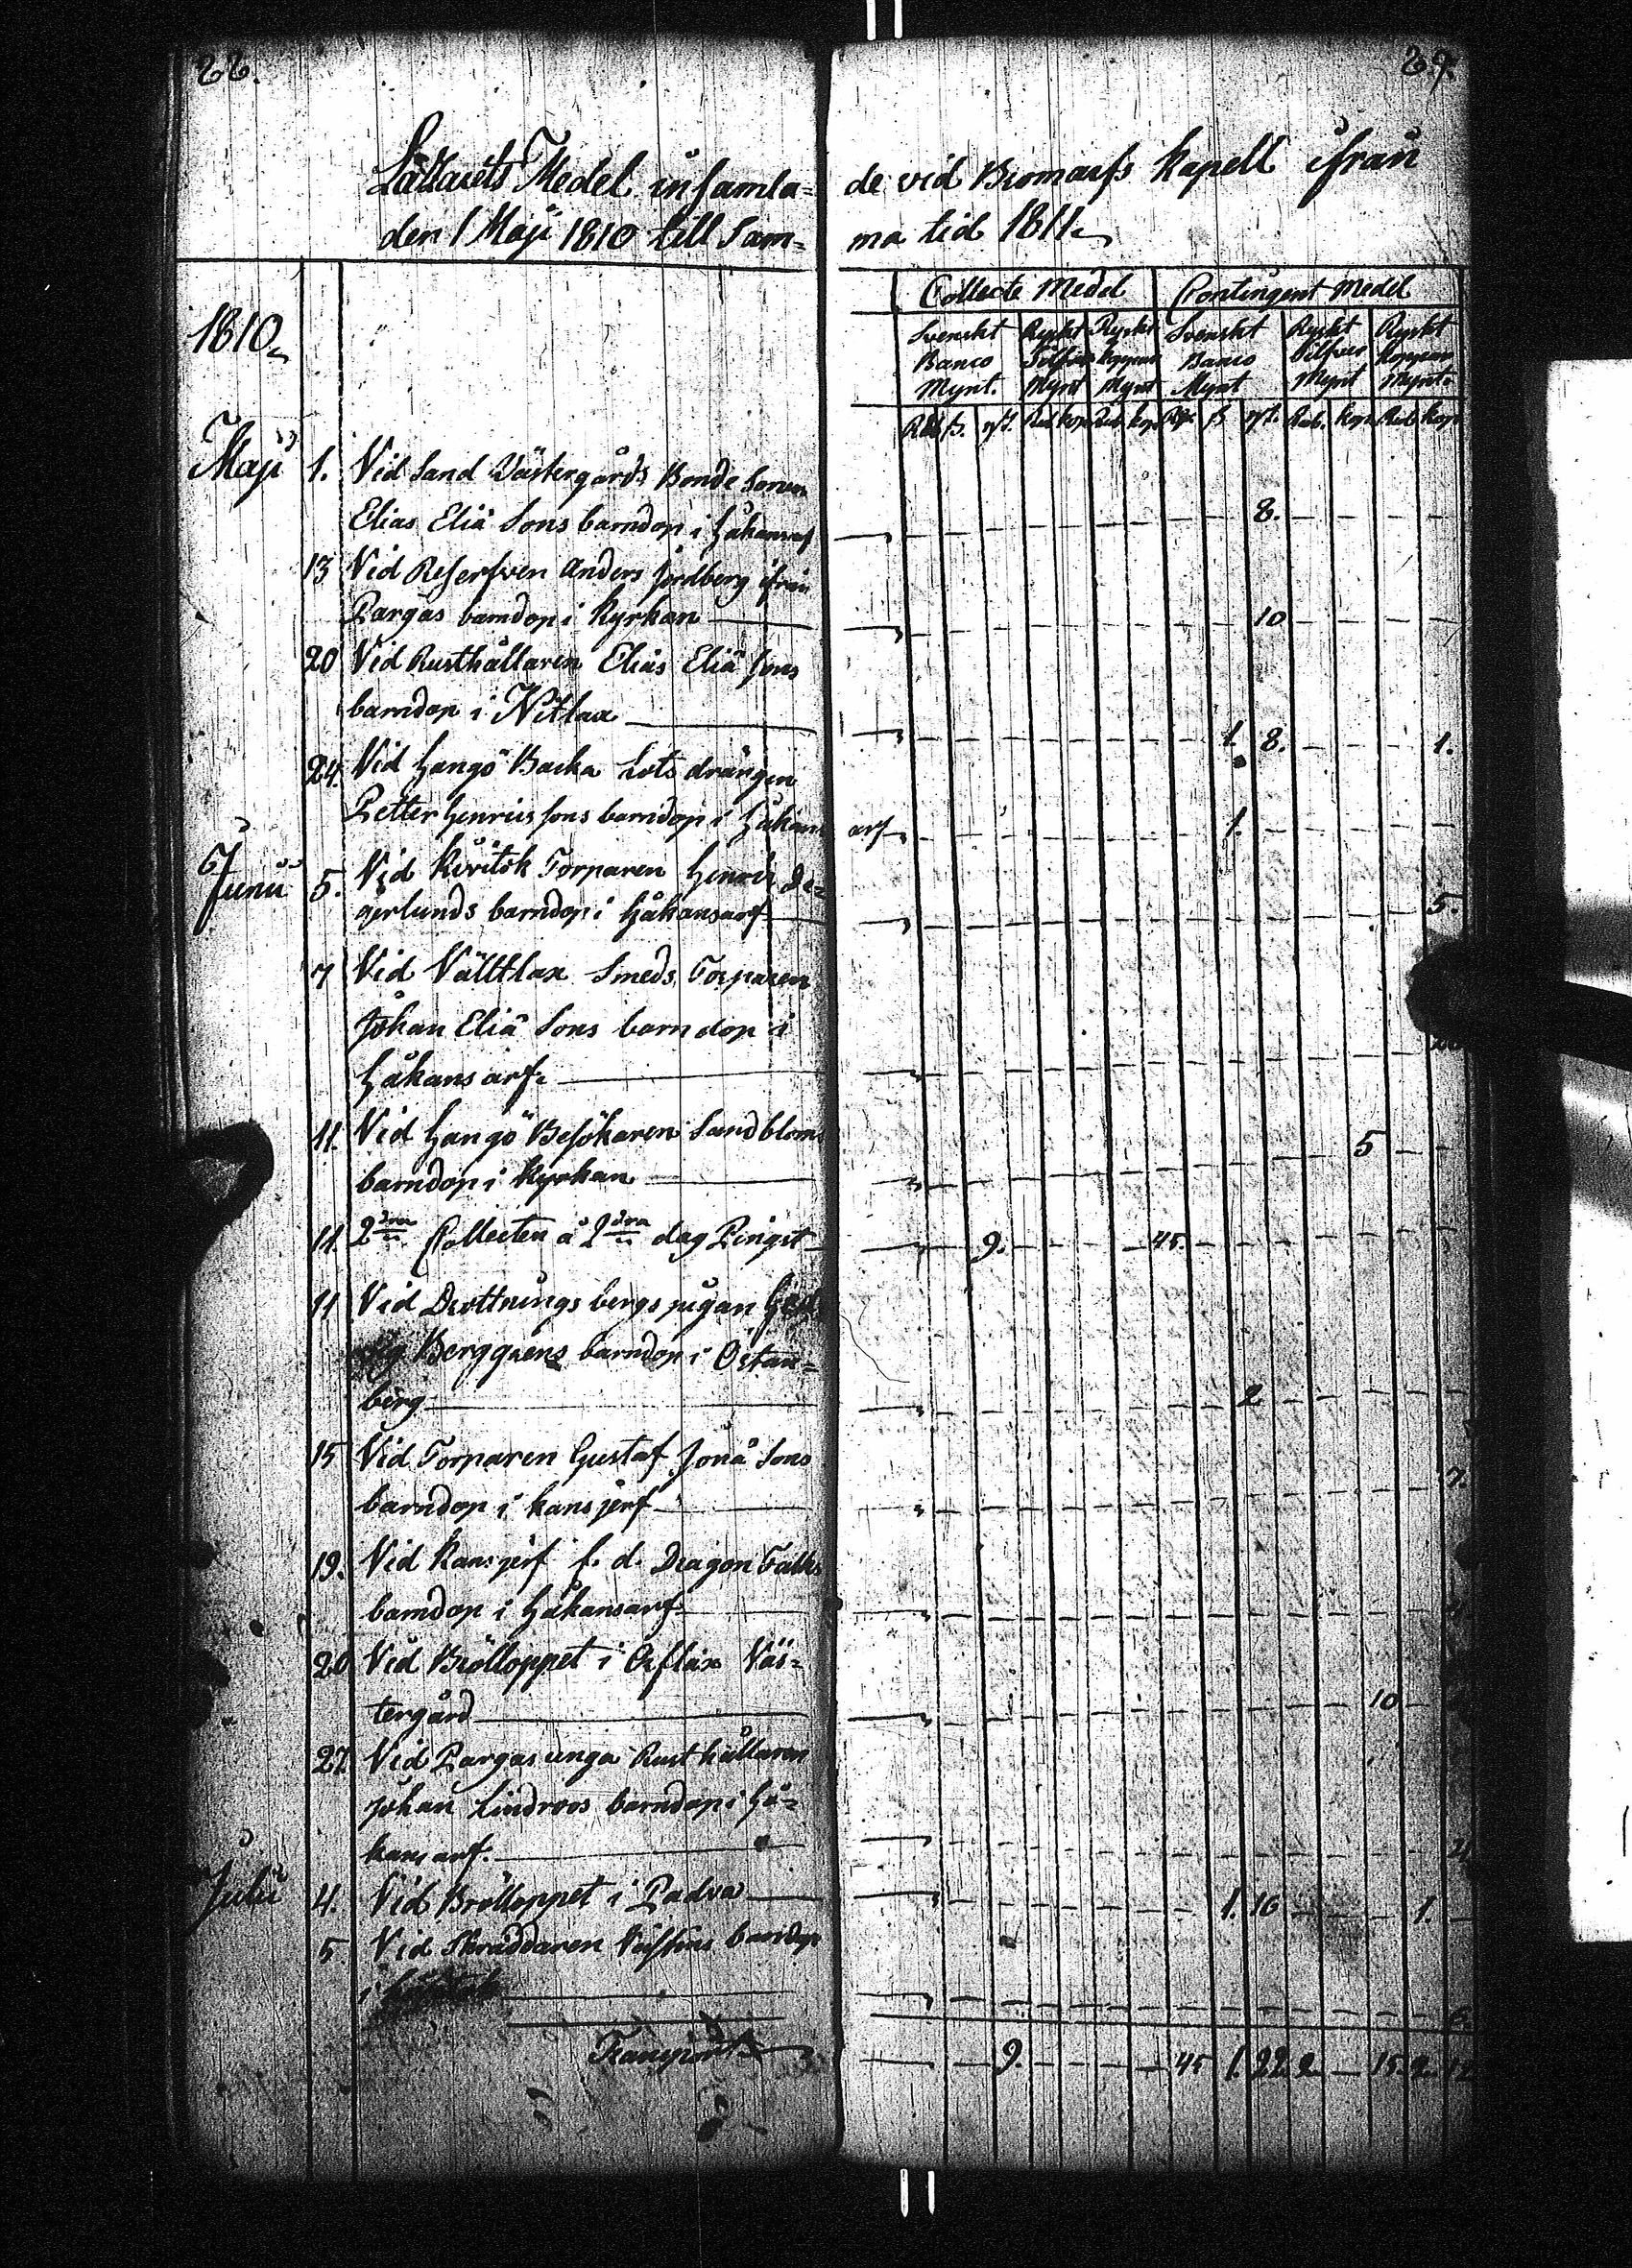 29.
Medel insamla=
de vid Bromarfs Kapell ifrån
den 1 Maji 1810 till Sam=
ma tid 1811.
Collecte Medel
Contingent Medel
1810.
Svenskt Banco Mynt.
Ryskt Silfver Mynt
Ryskt koppar Mynt
Svenskt Banco Mynt
Ryskt Silfver Mynt
Ryskt koppar Mynt.
Maji 1. Vid Sand Västergårds Bonde Sonen
Elias Eliä Sons barndop i Håkansarf 8.
13 Vid Reserfven Anders ifrån
Pargas barndop i Kyrkan 10
20 Vid Rusthållaren Elias Eliä Sons
barndop i Nitlax 1. 8. 1.
24. Vid Hangö Backa Lots drängen
Petter Henrics sons barndop i Håkans
arf 1.
Junii 5. Vid Torparen Henric De=
gerlunds barndop i Håkansarf 5.
7 Vid Vättlax Smeds Torparen
Johan Eliä Sons barndop i
Håkansarf.
11. Vid Hangö Besökaren Sandbloms
barndop i Kyrkan 5
11. 2dra Collecten å 2dra dag Pingst 9. 45.
11 Vid Drottningsbergs pigan
Berggrens barndop i Östan=
berg 2
15 Vid Torparen Gustaf Jona Sons
barndop i kansjerf 7.
19. Vid Kansjerf f. d. Dragon Falks
barndop i Håkansarf
20 Vid Brölloppet i Ärflax Väs=
tergård 10
27. Vid Pargas unga Rusthållaren
Johan Lindroos barndop i Hå=
kansarf.
Julii 4. Vid Brölloppet i Padva 1. 16 1.
5. Vid Skräddaren barndop
i 6.
Transport 9. 45 1. 22. 2 15. 2. 12